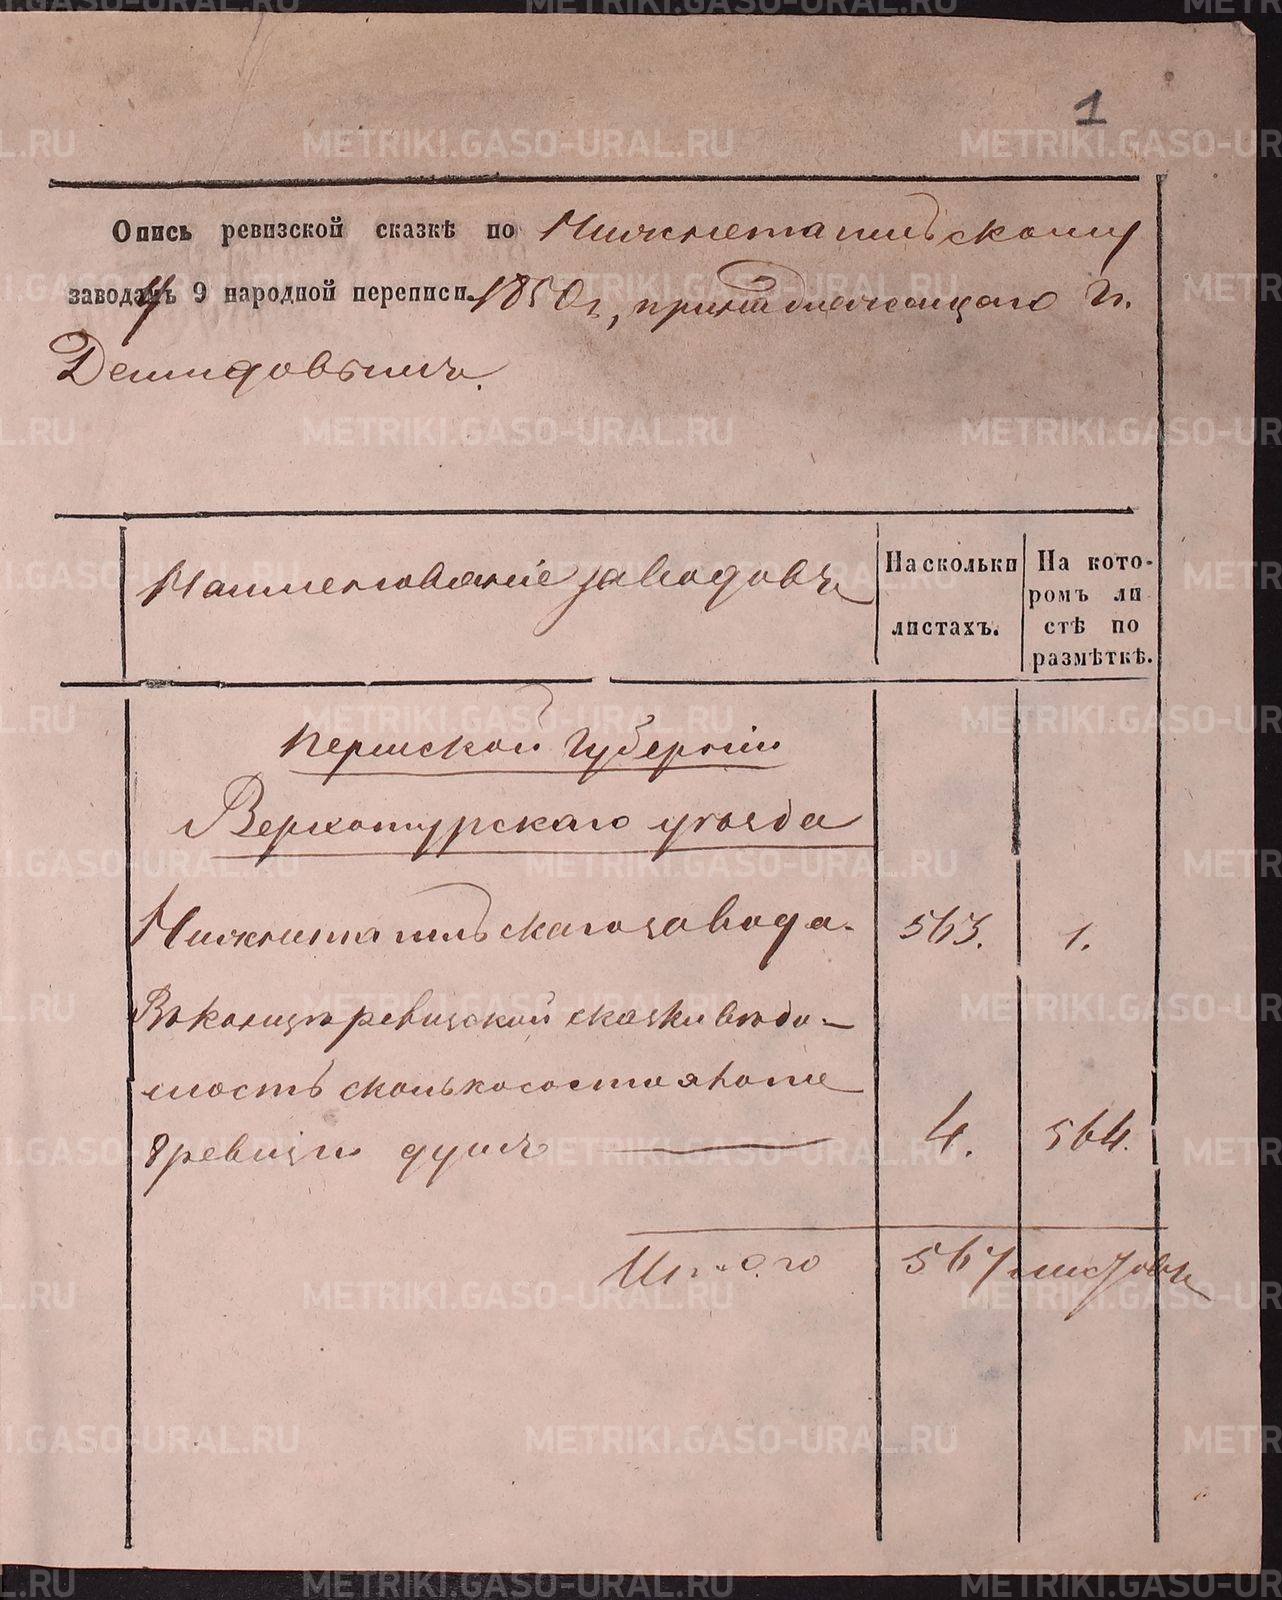 1
Опись ревизской сказкѣ по Нижнетагильскому
заводу 9 народной переписи 1850 г., принадлежащаго Гг.
Демидовымъ.
Наименованіе заводовъ
На сколькихъ листахъ.
На которомъ листѣ по размѣткѣ.
Пермской Губерніи
Верхотурскаго уѣзда
Нижнетагильскаго завода. 563. 1.
Въ концѣ ревизской сказки вѣдо-
мость сколько состояло по
8 ревизіи душъ 4. 564.
Итого 567 листовъ
METRIKI.GASO-URAL.RU